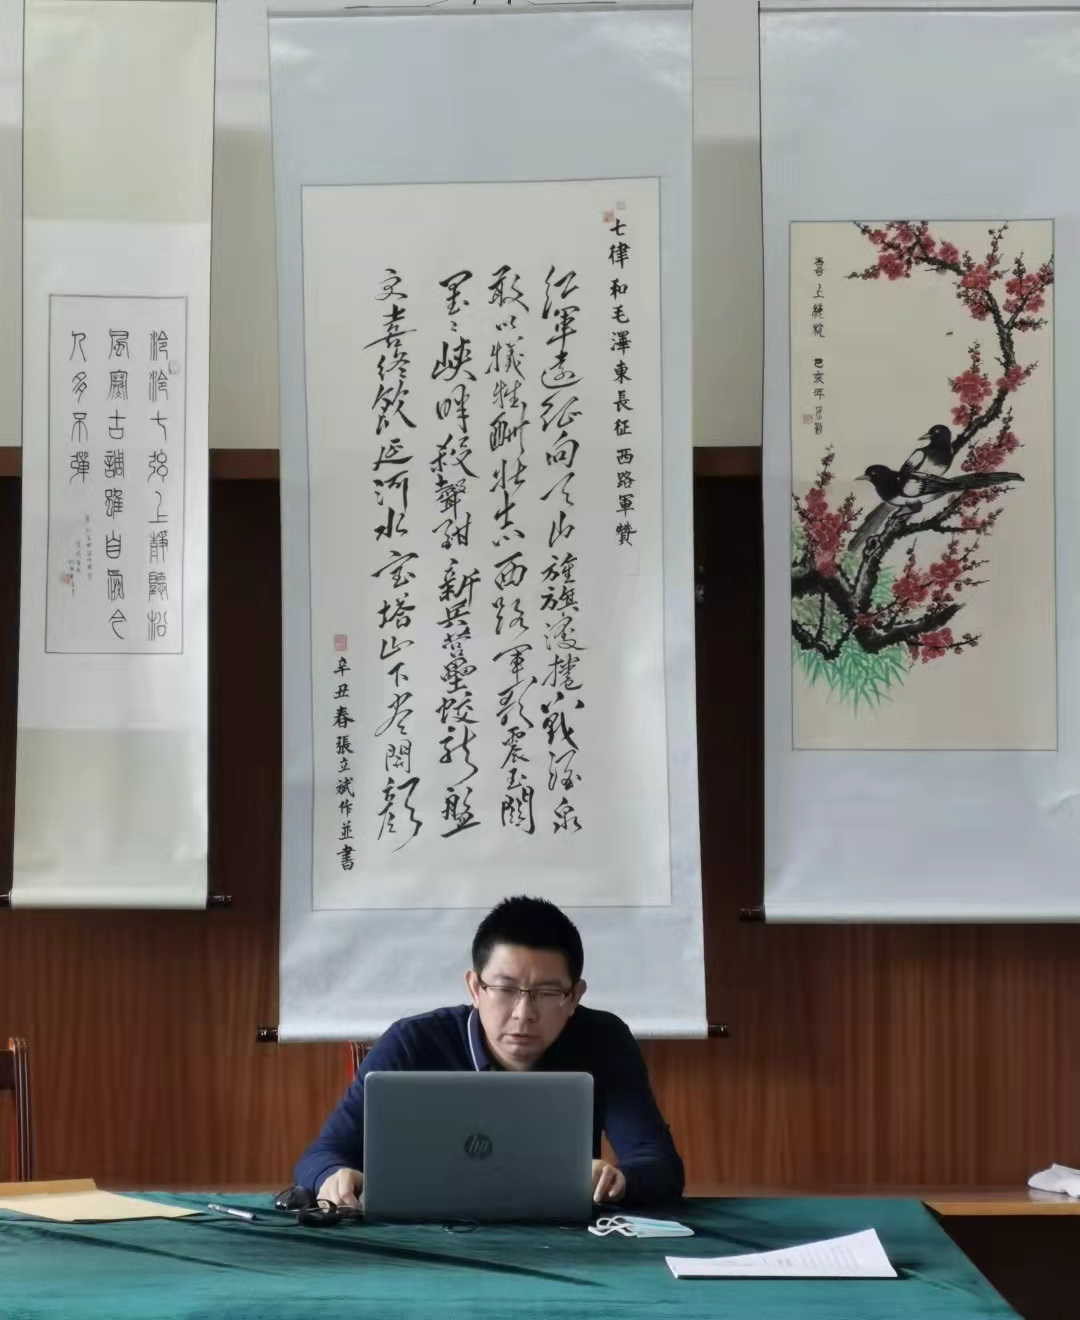 七律和毛澤東長征 西路軍贊
紅軍遠征向天山旌旗漫捲戰酒泉
敢以犧牲酬壯志西路軍歌震玉關
墨〻峽畔殺聲酣新兵营壘蛟龍盤
文喜终飲延河水宝塔山下尽開顏
辛丑春張立斌作並書
泠泠七弦上靜聽松
風寒古調雖自愛今
人多不彈
喜上梅梢 己亥年
hp